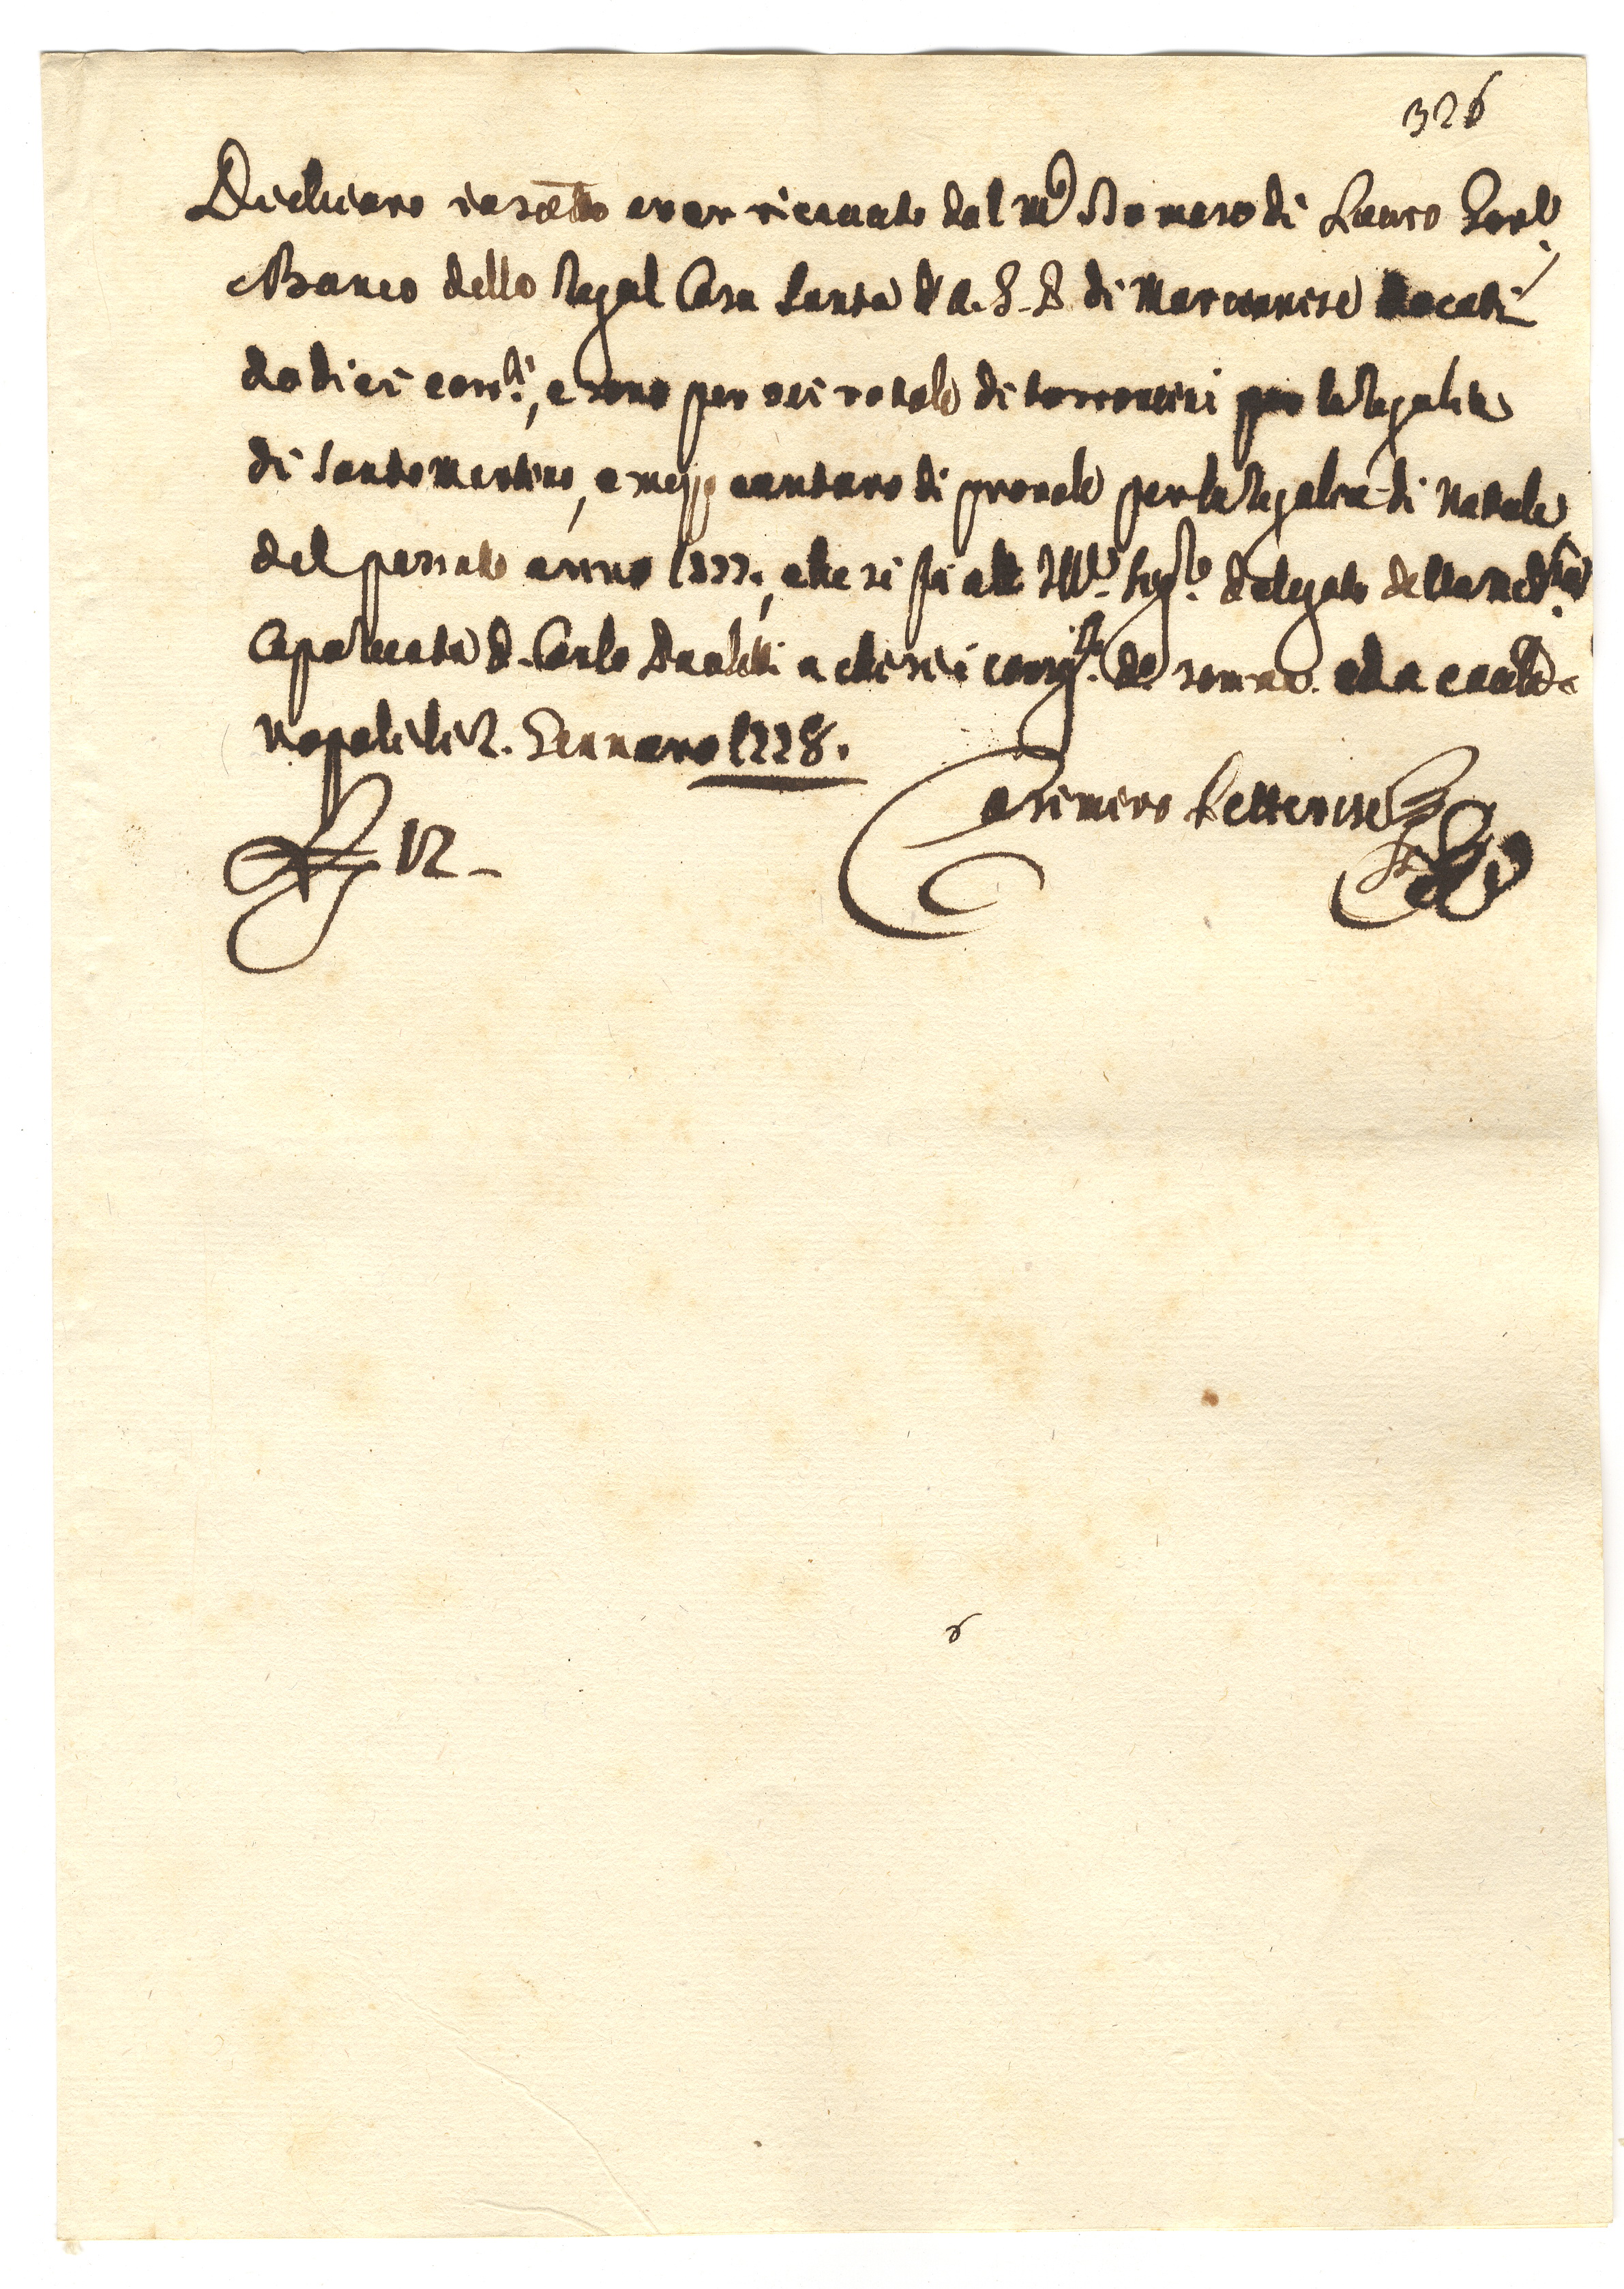 326
Dichiaro io sotto aver ricevuto dal M.co Tomaso di Lauro
Banco della Regal Casa Santa A. G. P. di Marcianise docati
dodici con.ti, e sono per sei rotola di torroncini per la regalia
di Santo Martino, e mezzo cantaro di provole per la regalia di Natale
del passato anno 1777, che si fa all' Ill.e Sig.e delegato della
D. Carlo a chi si de somma. ed a cautela
Napoli li 2. Gennaro 1778.
12 - Casimiro Letterese
6